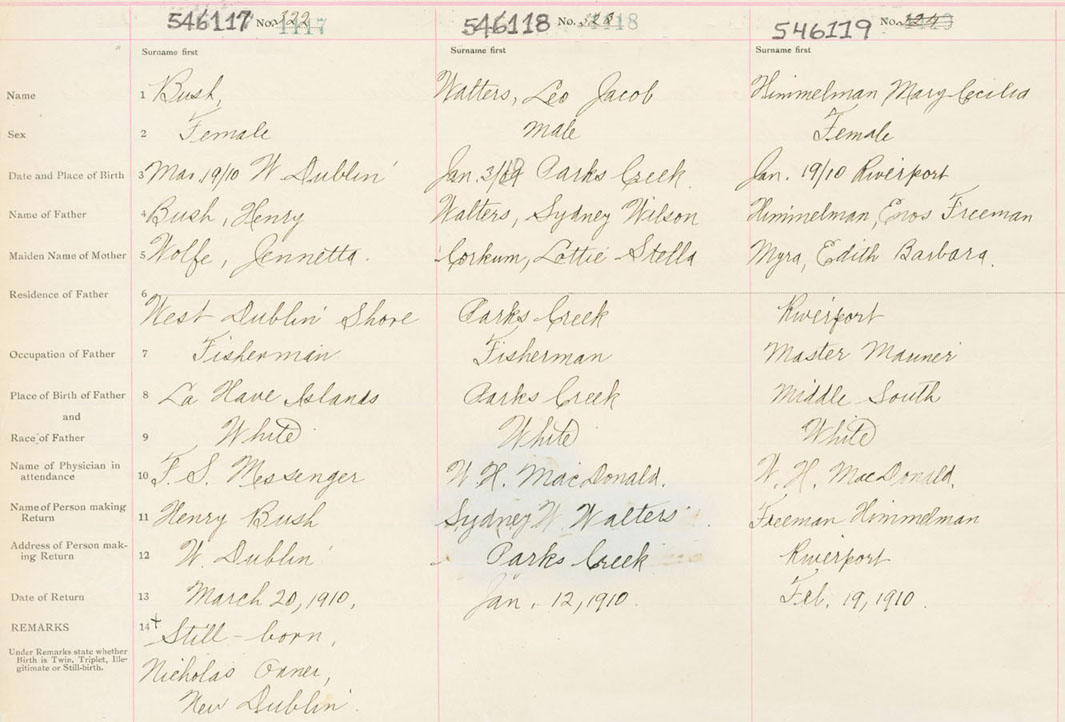 546117 No. 322 1117
546118 No. 323 1118
546119 No. 324
Surname first
Surname first
Surname first
Name 1 Bush, Walters, Leo Jacob Himmelman Mary Cecilia
Sex 2 Female Male Female
Date and Place of Birth 3 Mar. 19/10 W. Dublin Jan. 3/ Parks Creek. Jan. 19/10 Riverport
Name of Father 4 Bush, Henry Walters, Sydney Wilson Himmelman, Enos Freeman
Maiden Name of Mother 5 Wolfe, Jennetta. Corkum, Lottie Stella Myra, Edith Barbara.
Residence of Father 6 West Dublin Shore Parks Creek Riverport
Occupation of Father 7 Fisherman Fisherman Master Mariner
Place of Birth of Father 8 La Have Islands Parks Creek Middle South
and
Race of Father 9 White White White
Name of Physician in
attendance 10 F. S. Messenger W. H. MacDonald. W. H. MacDonald.
Name of Person making
Return 11 Henry Bush Sydney W. Walters Freeman Himmelman
Address of Person mak-
ing Return 12 W. Dublin Parks Creek Riverport
Date of Return 13 March 20, 1910, Jan. 12, 1910. Feb. 19, 1910.
REMARKS 14 Still-born,
Under Remarks state whether
Birth is Twin, Triplet, Ille-
gitimate or Still-birth.
Nicholas
New Dublin.